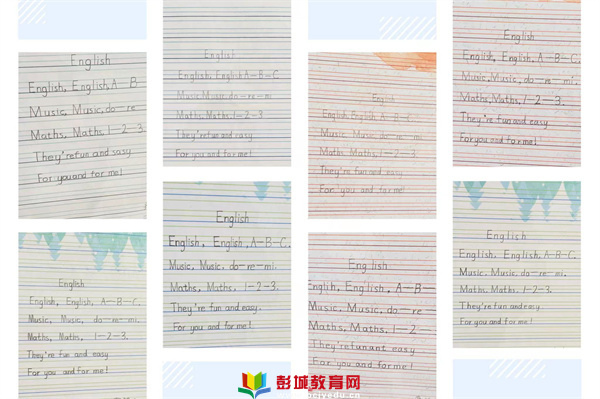 English
English, English, A—B—
Music, Music, do—re
Maths, Maths, 1—2—3.
They're fun and easy
For you and for me!
English
English, English A-B-C
Music, Music, do-re-mi
Maths, Maths, 1-2-3
They're fun and easy
For you and for me!
English
English, English, A-B-C.
Music, Music, do-re-mi.
Maths, Maths, 1-2-3.
They're fun and easy
For you and for me!
English
English, English, A—B—C.
Music, Music, do—re—mi.
Maths, Maths, 1—2—3.
They're fun and easy
For you and for me!
English
English, English, A—B—C.
Music, Music, do—re—mi.
Maths, Maths, 1—2—3.
They're fun and easy
For you and for me!
English
English, English, A—B—C.
Music, Music, do—re—mi.
Maths, Maths, 1—2—3.
They're fun and easy.
For you and for me!
English
English, English, A—B—
Music, Music, do—re—
Maths, Maths, 1—2—3.
easy
For you and for me!
English
English, English, A—B—C.
Music, Music, do—re—mi.
Maths, Maths, 1—2—3.
They're fun and easy
For you and for me!
彭城教育网